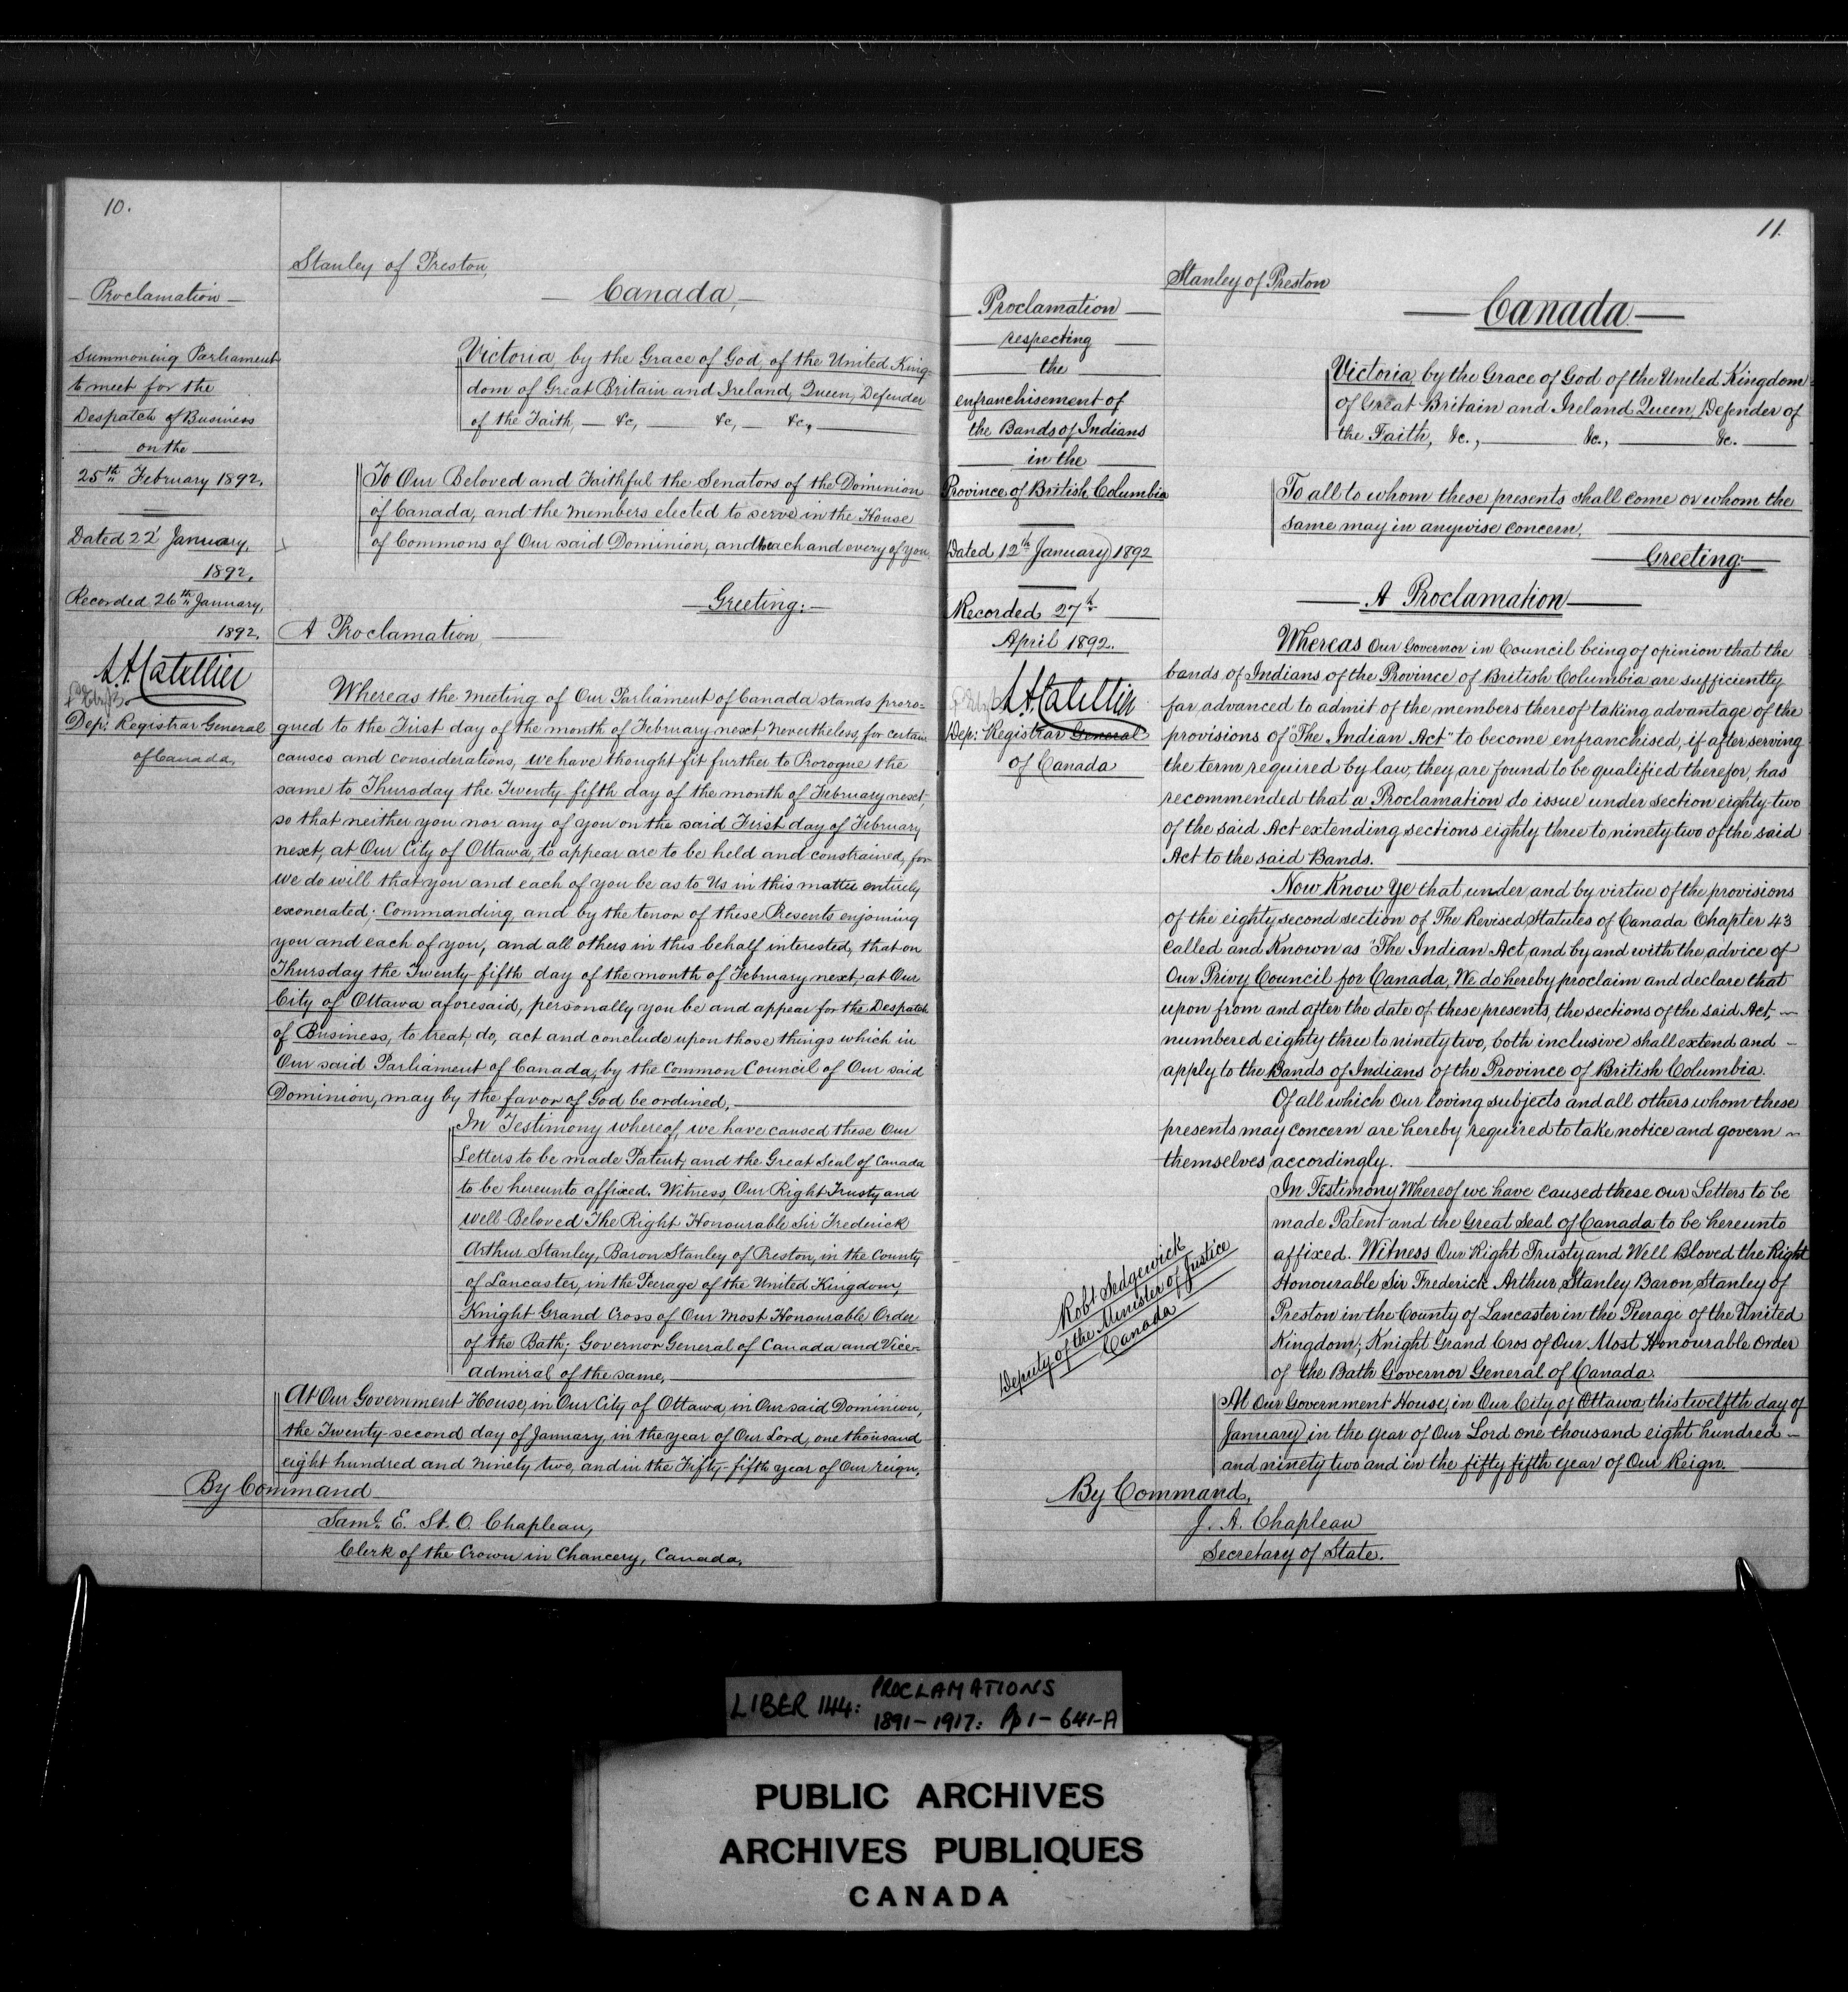 10.
Proclamation
Summoning Parliament
to meet for the
Despatch of Business
on the
25th February 1892.
Dated 22d January,
1892.
Recorded 26th January,
1892.
Dep: Registrar General
of Canada,
Stanley of Preston,
Canada,
Victoria by the Grace of God, of the United King-
dom of Great Britain and Ireland, Queen, Defender
of the Faith, &c, &c, &c,
To Our Beloved and Faithful the Senators of the Dominion
of Canada, and the Members elected to serve in the House
of Commons of Our said Dominion, and to each and every of you.
Greeting:
A Proclamation
Whereas the Meeting of Our Parliament of Canada stands proro-
gued to the First day of the month of February next Nevertheless, for certain
causes and considerations, we have thought fit further to Prorogue the
same to Thursday the Twenty-fifth day of the month of February next,
so that neither you nor any of you on the said First day of February
next, at Our City of Ottawa, to appear are to be held and constrained, for
we do will that you and each of you be as to Us in this matter entirely
exonerated; Commanding and by the tenor of these Presents enjoining
you and each of you, and all others in this behalf interested, that on
Thursday the Twenty-fifth day of the month of February next, at Our
City of Ottawa aforesaid, personally you be and appear for the Despatch
of Business, to treat, do, act and conclude upon those things which in
Our said Parliament of Canada, by the Common Council of Our said
Dominion, may by the favor of God be ordined,
In Testimony whereof, we have caused these Our
Letters to be made Patent, and the Great Seal of Canada
to be hereunto affixed. Witness, Our Right Trusty and
Well-Beloved The Right Honourable Sir Frederick
Arthur Stanley, Baron Stanley of Preston, in the County
of Lancaster, in the Peerage of the United Kingdom,
Knight Grand Cross of Our Most Honourable Order
of the Bath; Governor General of Canada and Vice-
Admiral of the same,
At Our Government House, in Our City of Ottawa, in Our said Dominion,
the Twenty-second day of January, in the year of Our Lord, one thousand
eight hundred and ninety two, and in the Fifty-fifth year of Our reign.
By Command
Saml. E. St. O. Chapleau,
Clerk of the Crown in Chancery, Canada,
11.
Proclamation
respecting
the
enfranchisement of
the Bands of Indians
in the
Province of British Columbia
Dated 12th January 1892
Recorded 27th
April 1892.
Dep: Registrar General
of Canada
Robt Sedgewick
Deputy of the Minister of Justice
Canada
Stanley of Preston
Canada
Victoria, by the Grace of God of the United Kingdom
of Great Britain and Ireland Queen, Defender of
the Faith, &c., &c., &c.
To all to whom these presents shall come or whom the
same may in anywise concern,
Greeting:
A Proclamation
Whereas Our Governor in Council being of opinion that the
bands of Indians of the Province of British Columbia are sufficiently
far advanced to admit of the members thereof taking advantage of the
provisions of "The Indian Act" to become enfranchised, if after serving
the term required by law, they are found to be qualified therefor, has
recommended that a Proclamation do issue under section eighty-two
of the said Act extending sections eighty three to ninety two of the said
Act to the said Bands.
Now Know Ye that under and by virtue of the provisions
of the eighty second section of The Revised Statutes of Canada Chapter 43
called and Known as "The Indian Act, and by and with the advice of
Our Privy Council for Canada, We do hereby proclaim and declare that
upon from and after the date of these presents, the sections of the said Act,
numbered eighty three to ninety two, both inclusive shall extend and
apply to the Bands of Indians of the Province of British Columbia.
Of all which Our loving subjects and all others whom these
presents may concern are hereby required to take notice and govern
themselves accordingly.
In Testimony Whereof we have caused these our Letters to be
made Patent and the Great Seal of Canada to be hereunto
affixed. Witness Our Right Trusty and Well Bloved the Right
Honourable Sir Frederick Arthur Stanley Baron Stanley of
Preston in the County of Lancaster in the Peerage of the United
Kingdom; Knight Grand Cros of Our Most Honourable Order
of the Bath Governor General of Canada.
At Our Government House, in Our City of Ottawa, this twelfth day of
January in the year of Our Lord one thousand eight hundred
and ninety two and in the fifty fifth year of Our Reign.
By Command,
J. A. Chapleau
Secretary of State.
LIBER 144: PROCLAMATIONS
1891-1917: Pp 1-641-A
PUBLIC ARCHIVES
ARCHIVES PUBLIQUES
CANADA